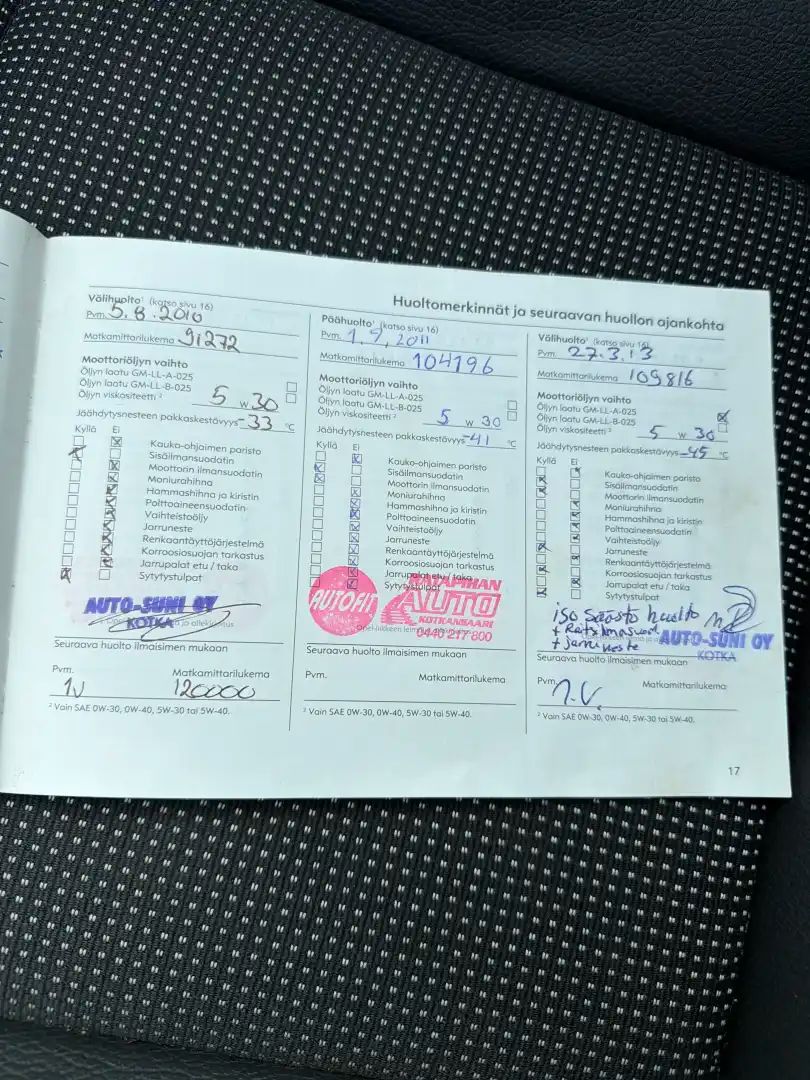 Huoltomerkinnät ja seuraavan huollon ajankohta
Välihuolto¹ (katso sivu 16)
Pvm. 5.8.2010
Matkamittarilukema 91272
Moottoriöljyn vaihto
Öljyn laatu GM-LL-A-025
Öljyn laatu GM-LL-B-025
Öljyn viskositeetti ² 5 W 30
Jäähdytysnesteen pakkaskestävyys -33 °C
Kyllä Ei
Kauko-ohjaimen paristo
Sisäilmansuodatin
Moottorin ilmansuodatin
Moniurahihna
Hammashihna ja kiristin
Polttoaineensuodatin
Vaihteistoöljy
Jarruneste
Renkaantäyttöjärjestelmä
Korroosiosuojan tarkastus
Jarrupalat etu / taka
Sytytystulpat
AUTO-SUNI OY
KOTKA
Seuraava huolto ilmaisimen mukaan
Pvm. Matkamittarilukema
1v 120000
² Vain SAE 0W-30, 0W-40, 5W-30 tai 5W-40.
Päähuolto¹ (katso sivu 16)
Pvm. 1.9.2011
Matkamittarilukema 104196
Moottoriöljyn vaihto
Öljyn laatu GM-LL-A-025
Öljyn laatu GM-LL-B-025
Öljyn viskositeetti ² 5 W 30
Jäähdytysnesteen pakkaskestävyys -41 °C
Kyllä Ei
Kauko-ohjaimen paristo
Sisäilmansuodatin
Moottorin ilmansuodatin
Moniurahihna
Hammashihna ja kiristin
Polttoaineensuodatin
Vaihteistoöljy
Jarruneste
Renkaantäyttöjärjestelmä
Korroosiosuojan tarkastus
Jarrupalat etu / taka
Sytytystulpat
AUTOFIT
AUTO
KOTKANSAARI
0440 217 800
Seuraava huolto ilmaisimen mukaan
Pvm. Matkamittarilukema
² Vain SAE 0W-30, 0W-40, 5W-30 tai 5W-40.
Välihuolto¹ (katso sivu 16)
Pvm. 27.3.13
Matkamittarilukema 109816
Moottoriöljyn vaihto
Öljyn laatu GM-LL-A-025
Öljyn laatu GM-LL-B-025
Öljyn viskositeetti ² 5 W 30
Jäähdytysnesteen pakkaskestävyys -45 °C
Kyllä Ei
Kauko-ohjaimen paristo
Sisäilmansuodatin
Moottorin ilmansuodatin
Moniurahihna
Hammashihna ja kiristin
Polttoaineensuodatin
Vaihteistoöljy
Jarruneste
Renkaantäyttöjärjestelmä
Korroosiosuojan tarkastus
Jarrupalat etu / taka
Sytytystulpat
iso säästö huolto
+ jarruneste
AUTO-SUNI OY
KOTKA
Seuraava huolto ilmaisimen mukaan
Pvm. Matkamittarilukema
1.V.
² Vain SAE 0W-30, 0W-40, 5W-30 tai 5W-40.
17